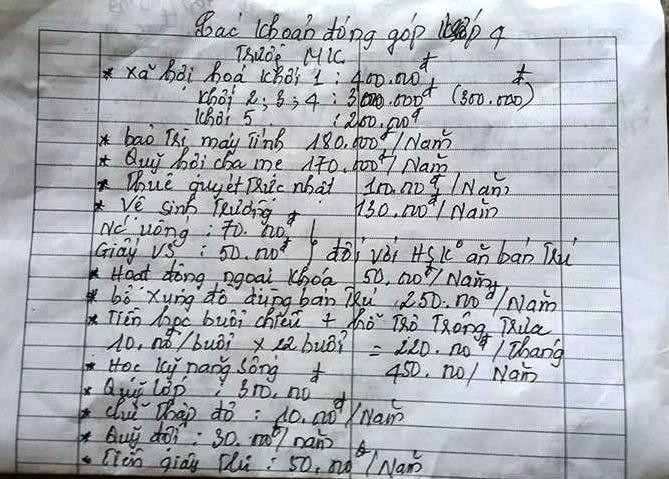 Các khoản đóng góp lớp 4
Trường MK
* Xã hội hoá khối 1 : 400.000đ
khối 2 ; 3 ; 4 : 300.000đ (300.000đ)
khối 5 : 200.000đ
* bảo trì máy tính 180.000đ/Năm
* Quỹ hội cha mẹ 170.000đ/Năm
* Thuê quyét trực nhật 100.000đ/Năm
* Vệ sinh trường 130.000đ/Năm
Nc uống : 70.000đ
Giấy VS : 50.000đ } đối với HS K° ăn bán trú
* Hoạt động ngoại khóa 50.000đ/Năm
* bổ xung đồ dùng bán trú 250.000đ/Năm
* Tiền học buổi chiều + hỗ trợ trông trưa
10.000đ/buổi x 22 buổi = 220.000đ/tháng
* Học kỹ năng sống 450.000đ/Năm
* Quỹ lớp : 300.000đ
* chữ thập đỏ : 10.000đ/Năm
* Quỹ đội : 30.000đ/năm
* Tiền giấy thi : 50.000đ/Năm